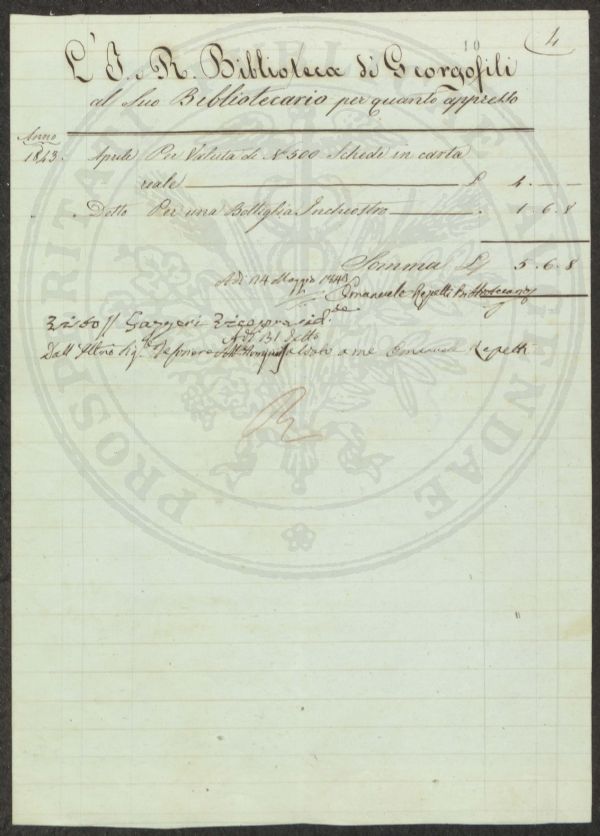 10
4
L'I. e R. Biblioteca di Georgofili
al Suo Bibliotecario per quanto appresso
Anno
1843. Aprile Per Valuta di N° 500 Schede in carta
reale £ 4. — —
. Detto Per una Bottiglia Inchiostro . 1. 6. 8
Somma £ 5. 6. 8
A dì 14 Maggio 1843
Emanuele Repetti Bibliotecario
Visto Gazzeri Vicepresid.te
A dì 31 detto
Dall' Sig. Tesoriere a me Emanuele Repetti
PROSPERITATI PUBLICAE AUGENDAE